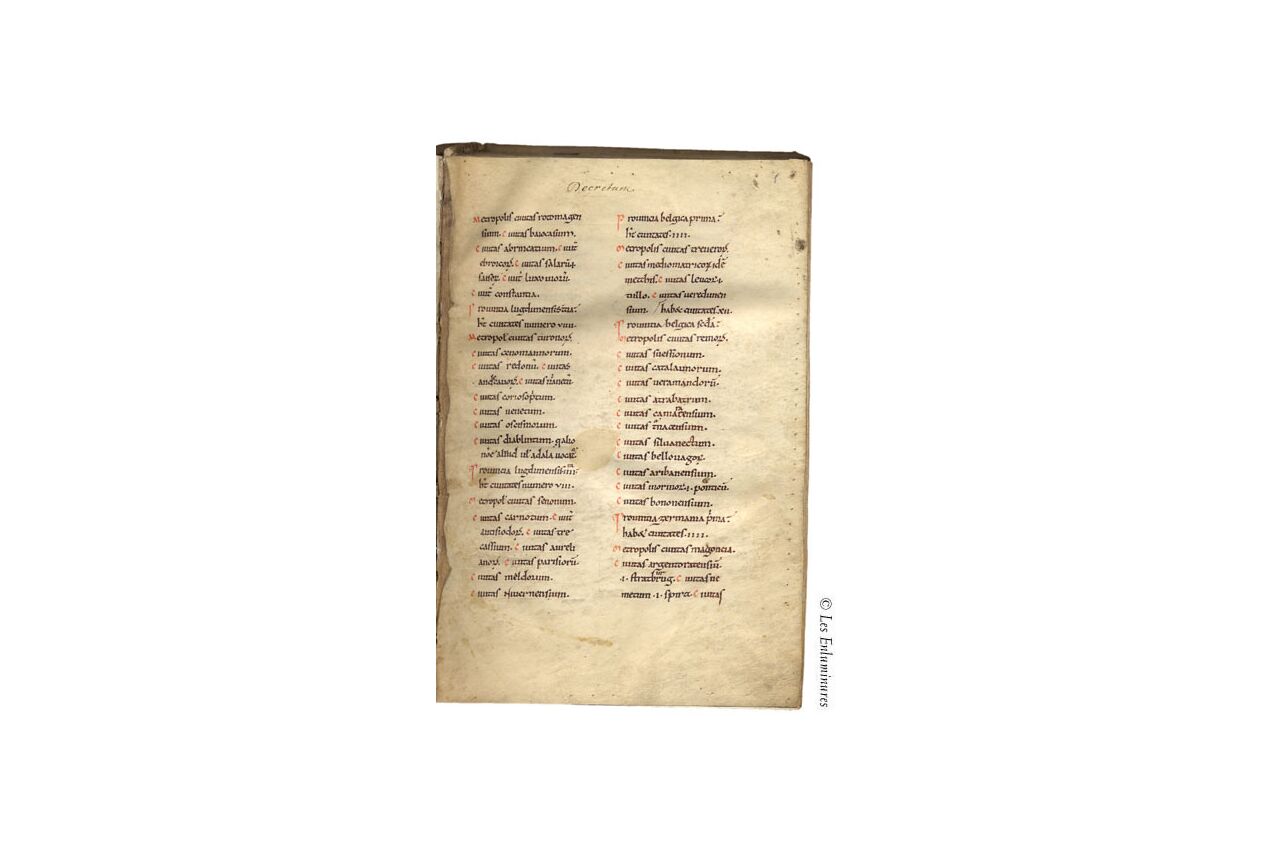 Decretum
Metropolis ciuitas rotomagen
sium. Ciuitas baiocasium.
Ciuitas abrincatium. Ciuit̄
ebroicoꝝ. Ciuitas salarū.
Ciuit̄ luxouiorū.
Ciuit̄ constantia.
Prouintia lugdunensis
hͭ ciuitates numero viiii.
Metropol̄ ciuitas turonoꝝ.
Ciuitas cenomannorum.
Ciuitas redonū. Ciuitas
andegauoꝝ. Ciuitas
Ciuitas coriosopitum.
Ciuitas uenetum.
Ciuitas osismorum.
Ciuitas diablintum. q̄ alio
nōe aliud ul̓ adala uocat̓.
Prouintia lugdunensis
hͭ ciuitates numero viii.
Metropol̄ ciuitas senonum.
Ciuitas carnotum. Ciuit̄
autisiodoꝝ. Ciuitas tre
cassium. Ciuitas aureli
anoꝝ. Ciuitas parisiorū.
Ciuitas meldorum.
Ciuitas niuernensium.
Prouincia belgica prima.
hͭ ciuitates. iiii.
Metropolis ciuitas treueroꝝ.
Ciuitas mediomatricoꝝ idē
mettis. Ciuitas leucoꝝ .i.
tullo. Ciuitas ueredunen
sium. habꝫ ciuitates. xii.
Prouintia belgica sc̄da.
Metropolis ciuitas remoꝝ.
Ciuitas suessionum.
Ciuitas catalaunorum.
Ciuitas ueramandorū.
Ciuitas atrabatum.
Ciuitas camaracensium.
Ciuitas t̓nacensium.
Ciuitas siluanectum.
Ciuitas bellouagoꝝ.
Ciuitas ambanensium.
Ciuitas mormoꝝ .i. ponticū.
Ciuitas bononensium.
Prouintia germania p̓ma.
habꝫ ciuitates. iiii.
Metropolis ciuitas magoncia.
Ciuitas argentoratensiū.
.i. stratburg. Ciuitas ne
metum .i. spira. Ciuitas
© Les Enluminures